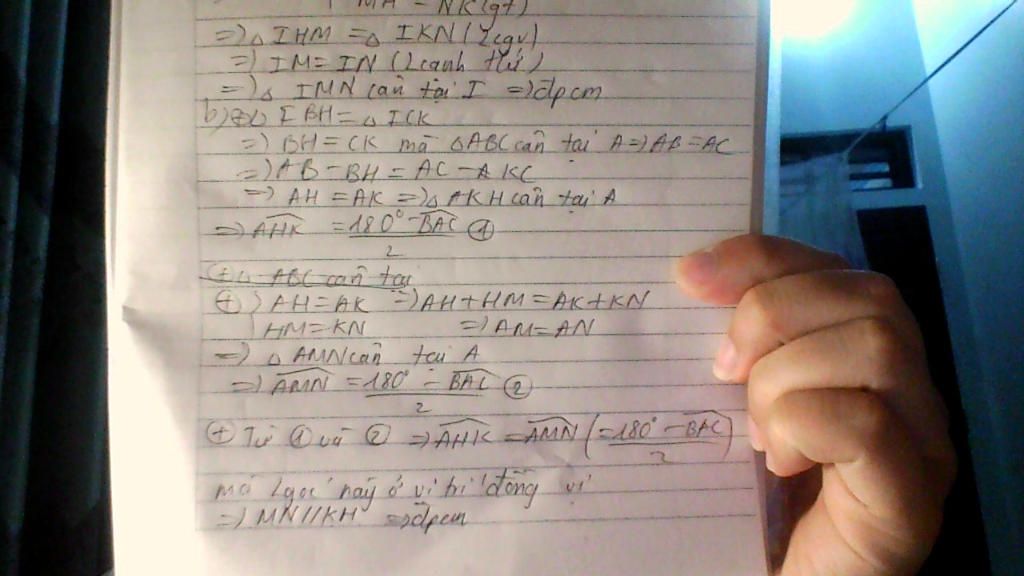 MH = NK (gt)
=> △ IHM = △ IKN (2cgv)
=> IM = IN (2 cạnh t/ứ)
=> △ IMN cân tại I => đpcm
b) △ IBH = △ ICK
=> BH = CK mà △ABC cân tại A => AB = AC
=> AB - BH = AC - KC
=> AH = AK => △ AKH cân tại A
=> AHK = 180° - BAC ①
2
(+) △ ABC cân tại
(+) AH = AK => AH + HM = AK + KN
HM = KN => AM = AN
=> △ AMN cân tại A
=> AMN = 180° - BAC ②
2
(+) Từ ① và ② => AHK = AMN (= 180° - BAC)
2
mà 2 góc này ở vị trí đồng vị
=> MN // KH => đpcm